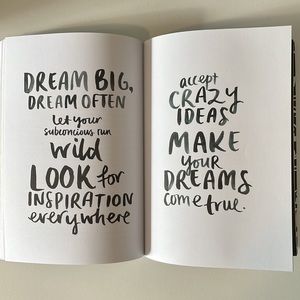 DREAM BIG,
DREAM OFTEN
let your
subconcious run
wild
LOOK for
INSPIRATION
everywhere
accept
CRAZY
IDEAS
MAKE
your
DREAMS
come true.